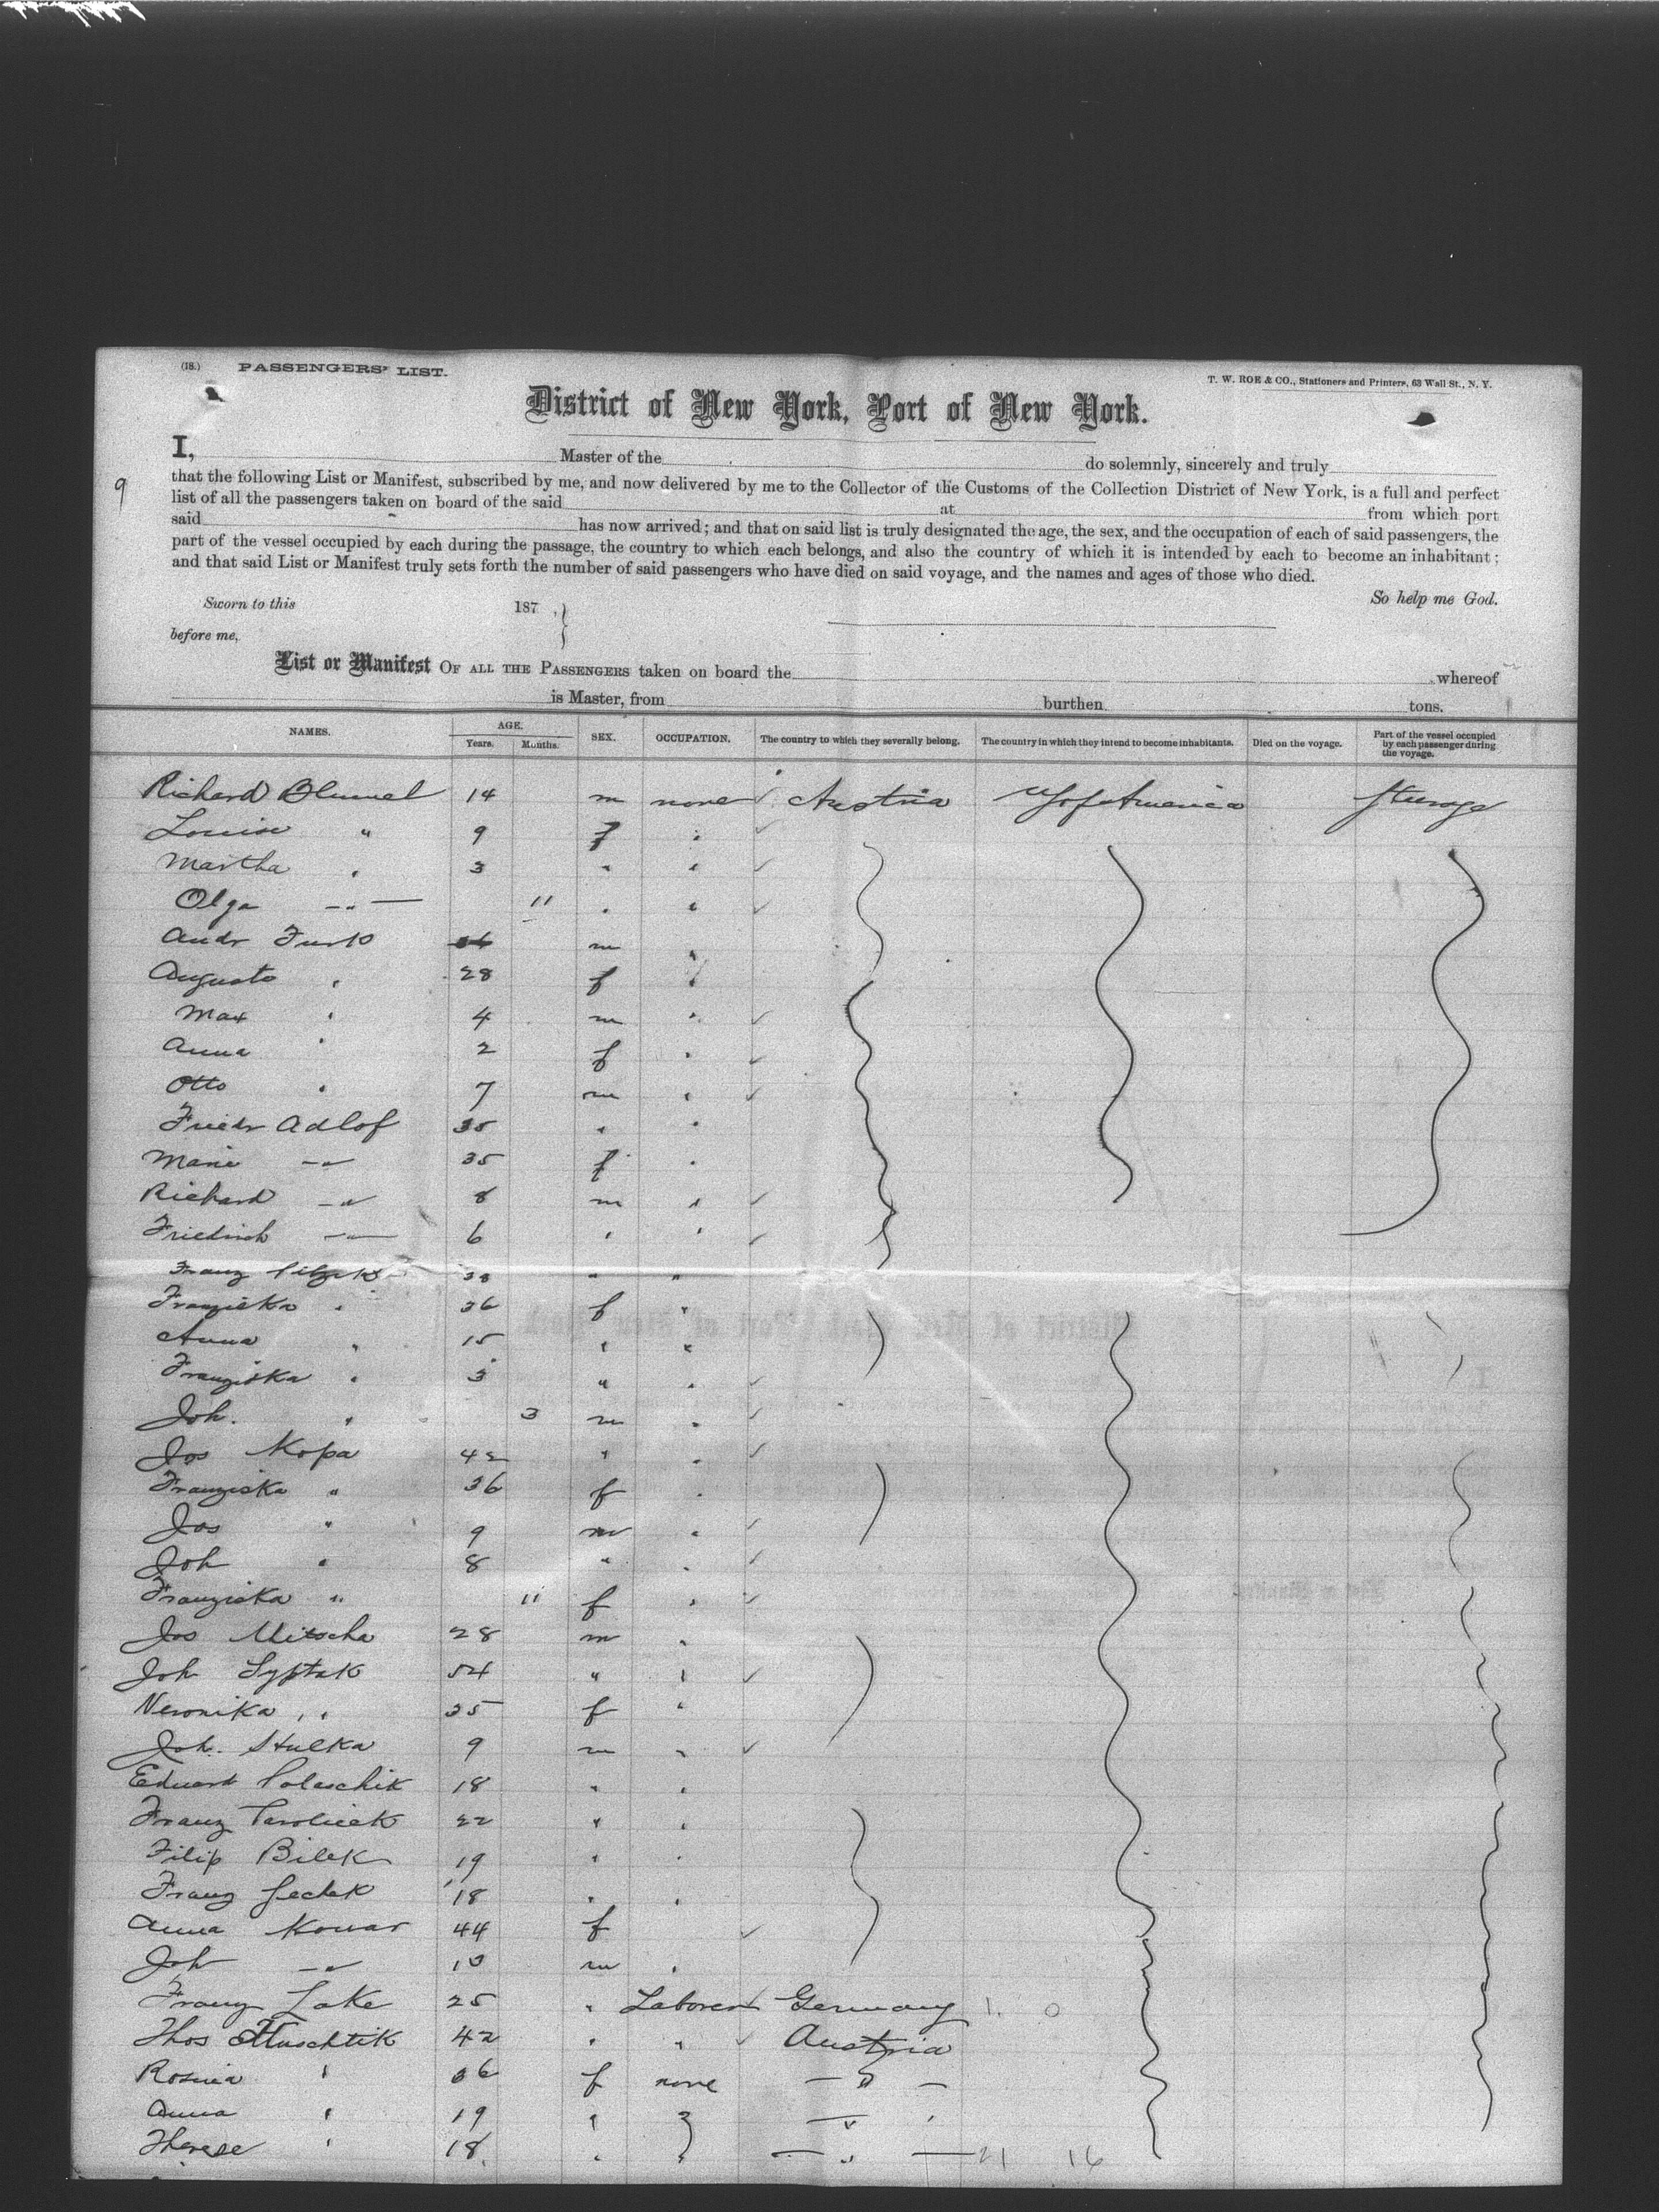 (18.) PASSENGERS' LIST.
T. W. ROE & CO., Stationers and Printers, 63 Wall St., N. Y.
District of New York, Port of New York.
I, Master of the do solemnly, sincerely and truly
9
that the following List or Manifest, subscribed by me, and now delivered by me to the Collector of the Customs of the Collection District of New York, is a full and perfect
list of all the passengers taken on board of the said at from which port
said has now arrived; and that on said list is truly designated the age, the sex, and the occupation of each of said passengers, the
part of the vessel occupied by each during the passage, the country to which each belongs, and also the country of which it is intended by each to become an inhabitant;
and that said List or Manifest truly sets forth the number of said passengers who have died on said voyage, and the names and ages of those who died.
Sworn to this 187 , So help me God.
before me,
List or Manifest OF ALL THE PASSENGERS taken on board the whereof
is Master, from burthen tons.
NAMES. AGE. Years. Months. SEX. OCCUPATION. The country to which they severally belong. The country in which they intend to become inhabitants. Died on the voyage. Part of the vessel occupied by each passenger during the voyage.
Richard Blumel 14 m none Austria US of America Steerage
Louise " 9 f "
Martha " 3 " "
Olga " 11 " "
Andr m "
Augusta " 28 f "
Max " 4 m "
Anna " 2 f "
Otto " 7 m "
Friedr Adlof 35 " "
Marie " 35 f "
Richard " 8 m "
Friedrich " 6 " "
Franz 38 " "
Franziska " 36 f "
Anna " 15 " "
Franziska " 3 " "
Joh. " 3 m "
Jos Kopa 42 " "
Franziska " 36 f "
Jos " 9 m "
Joh " 8 " "
Franziska " 11 f "
Jos Mitscha 28 m "
Joh Lyptak 54 " "
Veronika " 35 f "
Joh. Stulka 9 m "
Eduard Polaschik 18 " "
Franz 22 " "
Filip Bilek 19 " "
Franz 18 " "
Anna Kowar 44 f
Joh " 10 m "
Franz Lake 25 " Laborer Germany 1. 0
Thos 42 " " Austria
Rosina " 36 f none "
Anna " 19 " "
Therese " 18 " " " 21 16